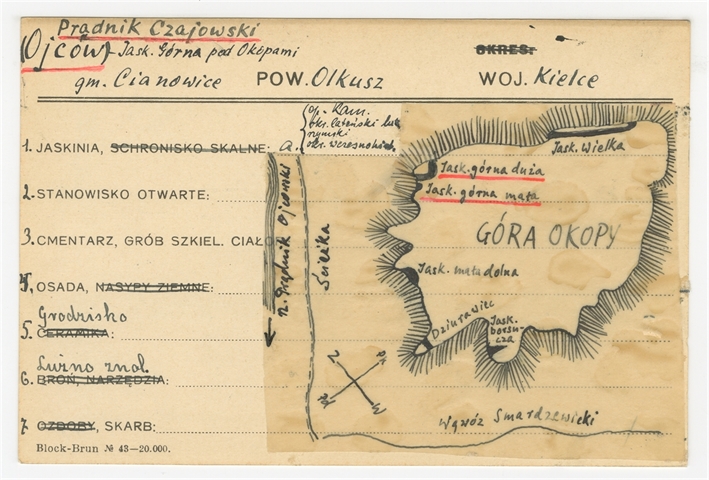 Prądnik Czajowski
(Ojców) - Jask. Górna pod Okopami
OKRES:
gm. Cianowice POW. Olkusz WOJ. Kielce
ep. Kam.
okr. lateński lub
rzymski
okr. wczesnohist.
1. JASKINIA, SCHRONISKO SKALNE: a.
2. STANOWISKO OTWARTE:
3. CMENTARZ, GRÓB SZKIEL. CIAŁO
4. OSADA, NASYPY ZIEMNE:
Grodzisko
5. CERAMIKA:
Luźno znal.
6. BROŃ, NARZĘDZIA:
7. OZDOBY, SKARB:
Block-Brun № 43-20.000.
Jask. Wielka
Jask. górna duża
Jask. górna mała
GÓRA OKOPY
Jask. mała dolna
Dziurawiec
Jask.
borsu-
cza
Ścieżka
Wąwóz Smardzewicki